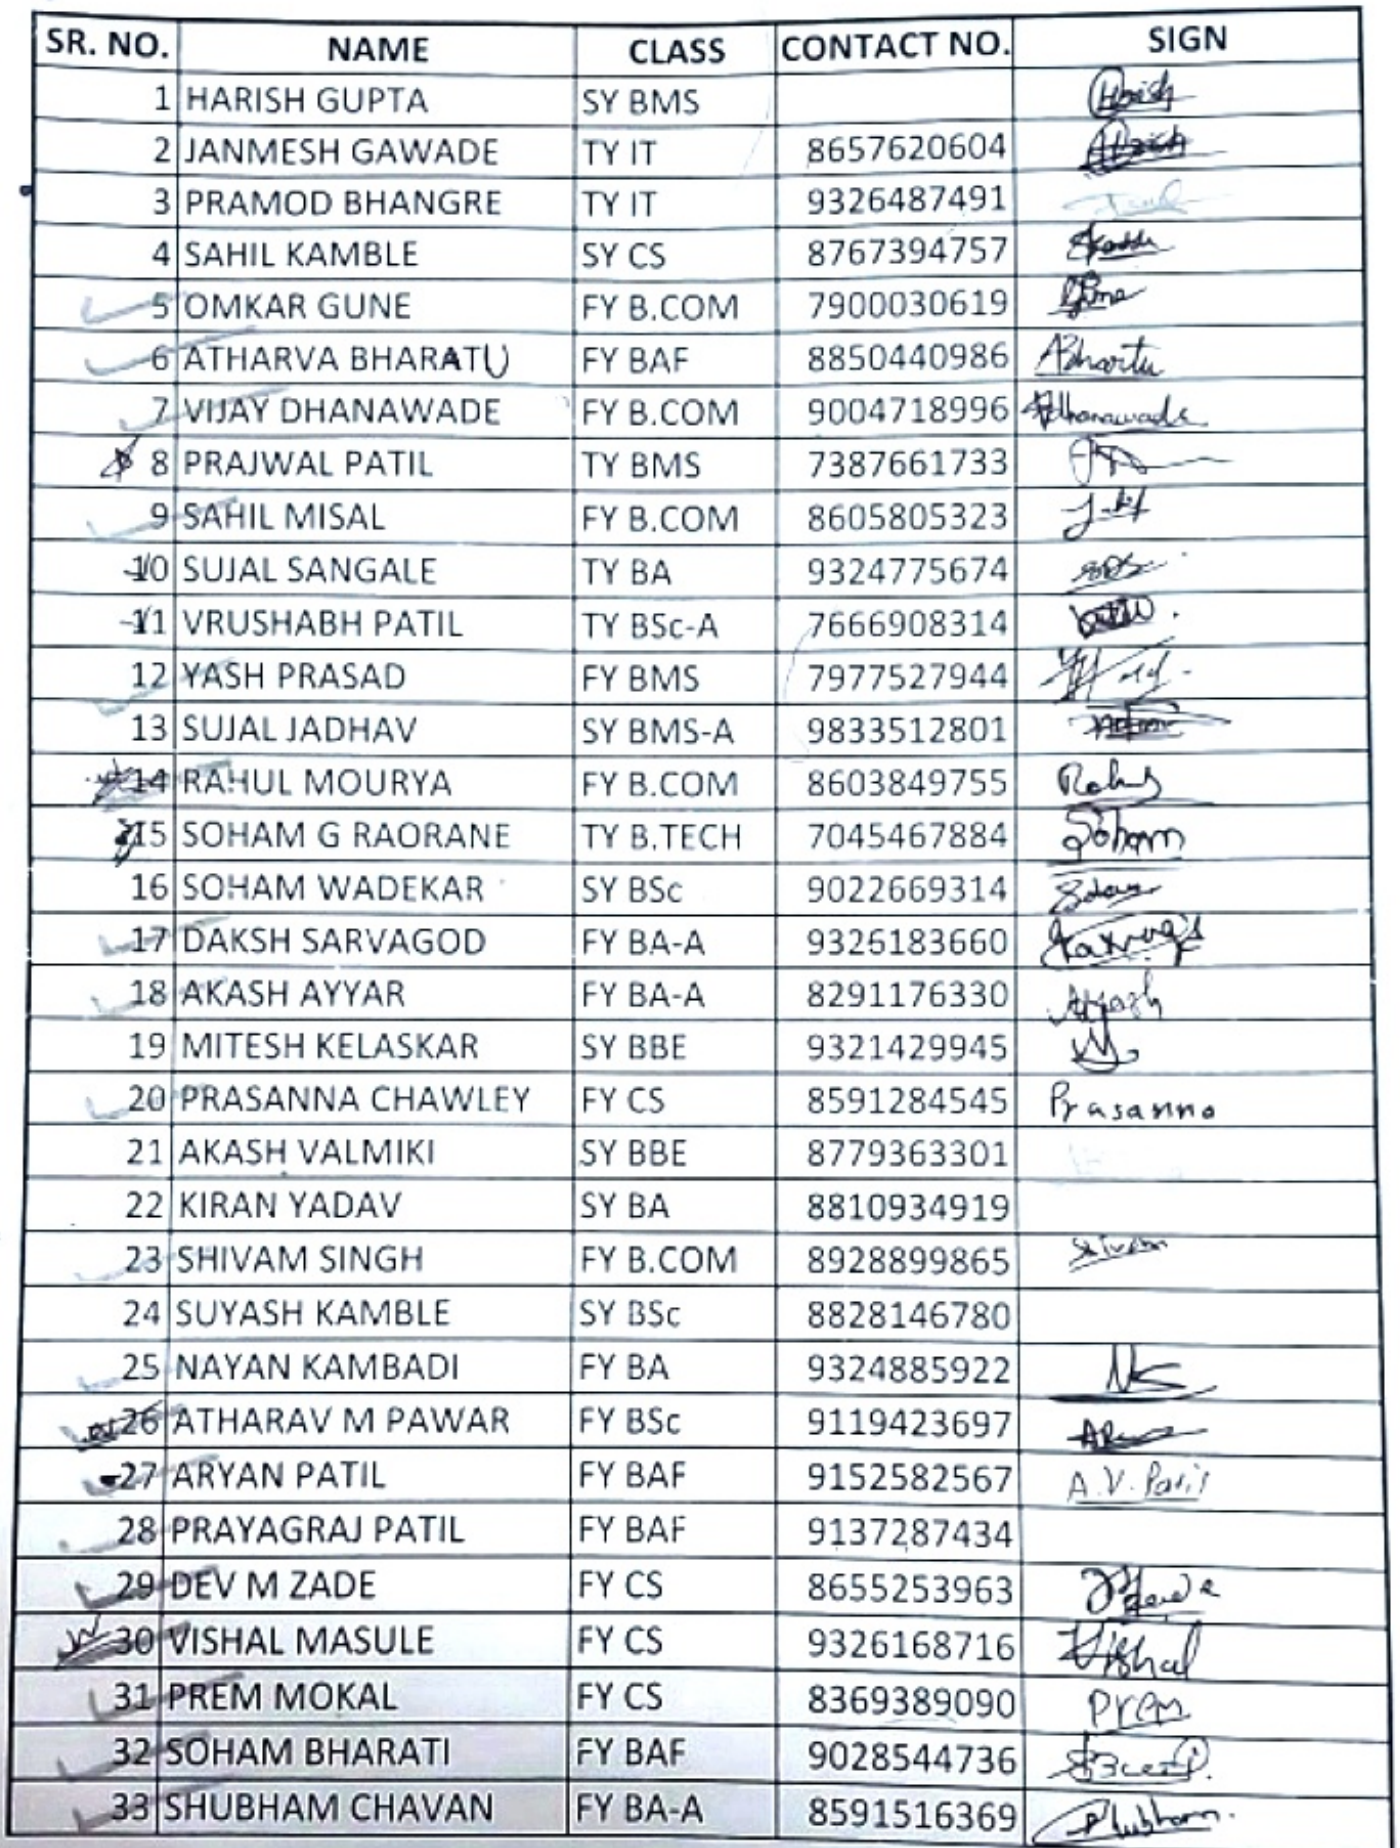 SR. NO. NAME CLASS CONTACT NO. SIGN
1 HARISH GUPTA SY BMS Harish
2 JANMESH GAWADE TY IT 8657620604
3 PRAMOD BHANGRE TY IT 9326487491
4 SAHIL KAMBLE SY CS 8767394757
5 OMKAR GUNE FY B.COM 7900030619
6 ATHARVA BHARATU FY BAF 8850440986 ABhartu
7 VIJAY DHANAWADE FY B.COM 9004718996 Vdhanawade
8 PRAJWAL PATIL TY BMS 7387661733
9 SAHIL MISAL FY B.COM 8605805323
10 SUJAL SANGALE TY BA 9324775674
11 VRUSHABH PATIL TY BSc-A 7666908314
12 YASH PRASAD FY BMS 7977527944
13 SUJAL JADHAV SY BMS-A 9833512801
14 RAHUL MOURYA FY B.COM 8603849755 Rahul
15 SOHAM G RAORANE TY B.TECH 7045467884 Soham
16 SOHAM WADEKAR SY BSc 9022669314
17 DAKSH SARVAGOD FY BA-A 9325183660
18 AKASH AYYAR FY BA-A 8291176330 Akash
19 MITESH KELASKAR SY BBE 9321429945
20 PRASANNA CHAWLEY FY CS 8591284545 Prasanna
21 AKASH VALMIKI SY BBE 8779363301
22 KIRAN YADAV SY BA 8810934919
23 SHIVAM SINGH FY B.COM 8928899865 Shivam
24 SUYASH KAMBLE SY BSc 8828146780
25 NAYAN KAMBADI FY BA 9324885922 NK
26 ATHARAV M PAWAR FY BSc 9119423697
27 ARYAN PATIL FY BAF 9152582567 A.V. Patil
28 PRAYAGRAJ PATIL FY BAF 9137287434
29 DEV M ZADE FY CS 8655253963
30 VISHAL MASULE FY CS 9326168716 Vishal
31 PREM MOKAL FY CS 8369389090 Prem
32 SOHAM BHARATI FY BAF 9028544736
33 SHUBHAM CHAVAN FY BA-A 8591516369 Shubham.